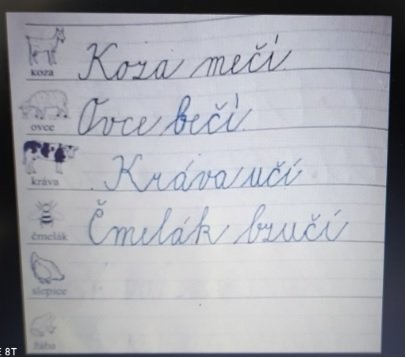 Koza mečí.
koza
Ovce bečí.
ovce
Kráva učí
kráva
Čmelák bzučí
čmelák
slepice
žába
8T